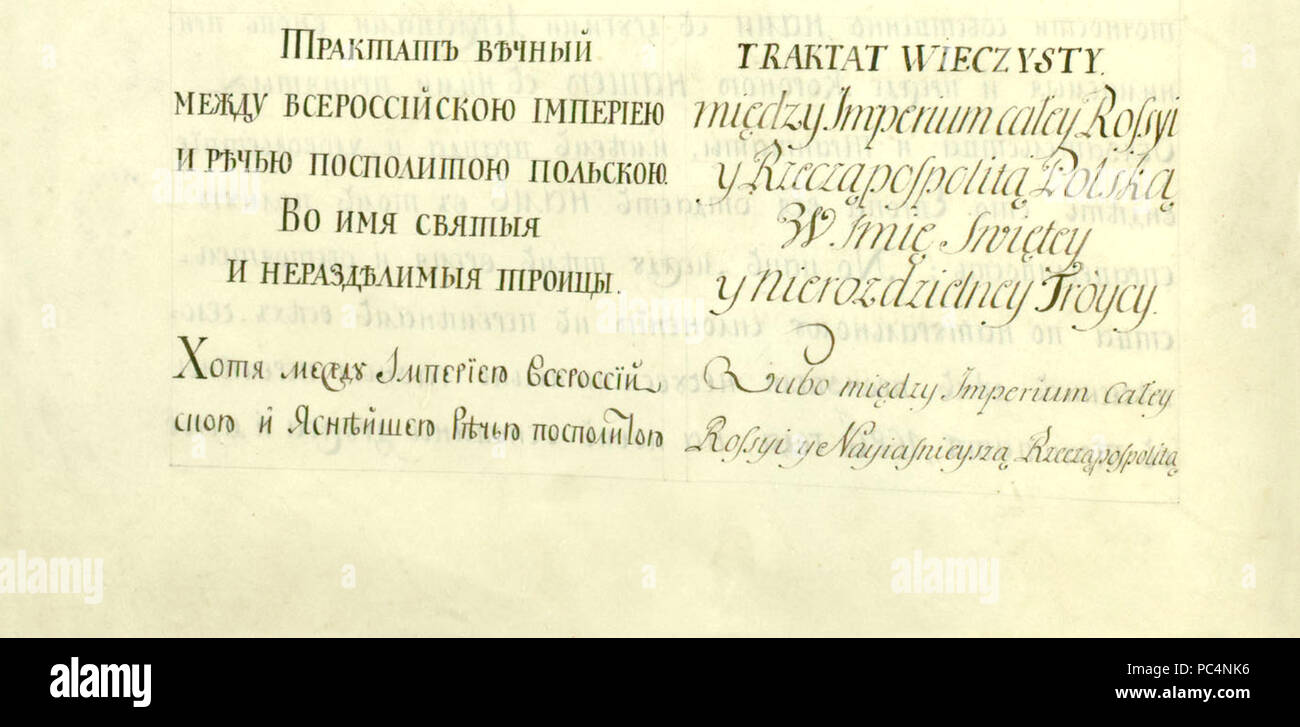 Трактатъ вѣчный
между Всероссійскою Імперіею
и Рѣчью Посполитою Польскою.
Во имя святыя
и нераздѣлимыя Троицы.
Хотя между Імперіею Всероссій
скою и Яснѣйшею Рѣчью посполитою
TRAKTAT WIECZYSTY.
między Imperium całey Rossyi
y Rzecząpospolitą Polską
W Imię Swiętey
y nierozdzielney Troycy.
Lubo między Imperium całey
Rossyi y Nayiasnieyszą Rzecząpospolitą
alamy
a
alamy
a
alamy
PC4NK6
www.alamy.com